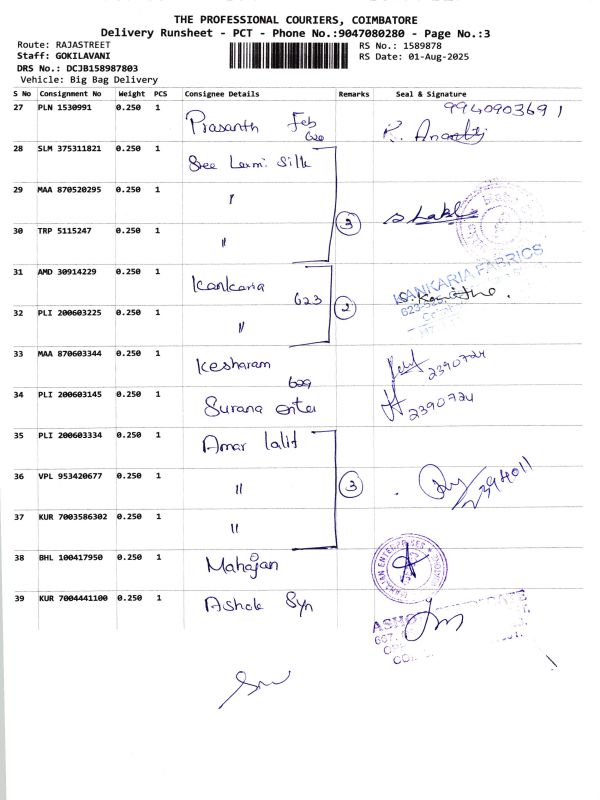 THE PROFESSIONAL COURIERS, COIMBATORE
Delivery Runsheet - PCT - Phone No.:9047080280 - Page No.:3
Route: RAJASTREET
RS No.: 1589878
Staff: GOKILAVANI
RS Date: 01-Aug-2025
DRS No.: DCJB158987803
Vehicle: Big Bag Delivery
S No Consignment No Weight PCS Consignee Details Remarks Seal & Signature
27 PLN 1530991 0.250 1 Prasanth Feb 9940903691
28 SLM 375311821 0.250 1 Sree Laxmi Silk
29 MAA 870520295 0.250 1 〃 3
30 TRP 5115247 0.250 1 〃
31 AMD 30914229 0.250 1 Kankaria 623 KANKARIA FABRICS
32 PLI 200603225 0.250 1 〃 2
33 MAA 870603344 0.250 1 Kesharam 629 2390724
34 PLI 200603145 0.250 1 Surana enter 2390724
35 PLI 200603334 0.250 1 Amar lalit
36 VPL 953420677 0.250 1 〃 3 2394011
37 KUR 7003586302 0.250 1 〃
38 BHL 100417950 0.250 1 Mahajan MAHAJAN ENTERPRISES
39 KUR 7004441100 0.250 1 Ashok Syn